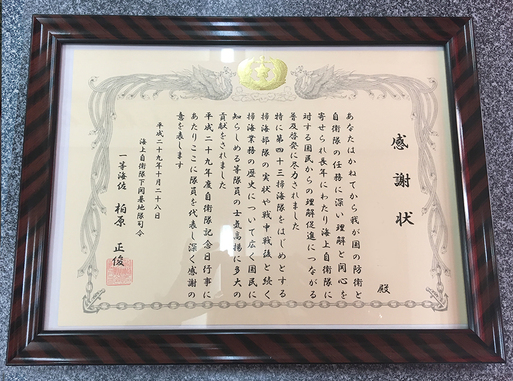 感謝状
殿
あなたはかねてから我が国の防衛と
自衛隊の任務に深い理解と関心を
寄せられ長年にわたり海上自衛隊に
対する国民からの理解促進につながる
普及啓発に尽力されました
特に第四十三掃海隊をはじめとする
掃海部隊の実状や戦中戦後と続く
掃海業務の歴史について広く国民に
知らしめる等隊員の士気高揚に多大の
貢献をされました
平成二十九年度自衛隊記念日行事に
あたりここに隊員を代表し深く感謝の
意を表します
平成二十九年十月二十八日
海上自衛隊下関基地隊司令
一等海佐 柏原 正俊